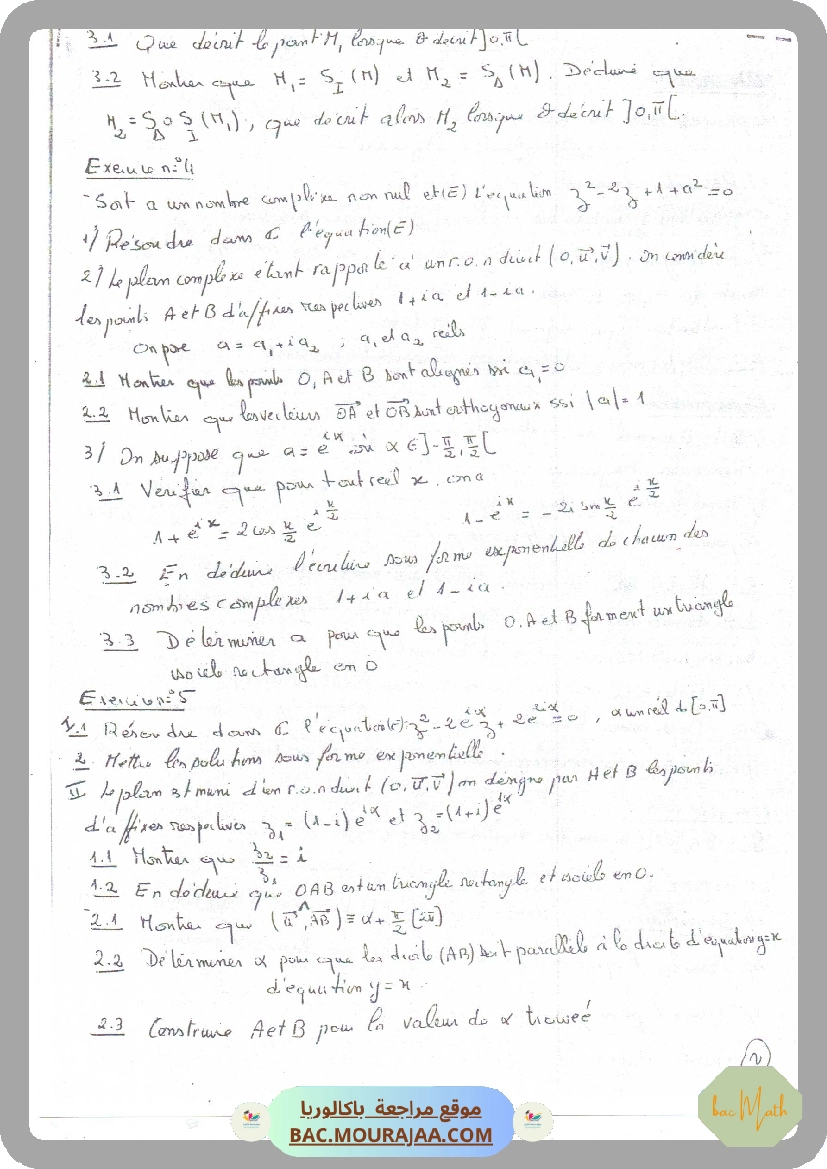 3.1 Que décrit le point M₁ lorsque θ décrit ]0,π[
3.2 Montrer que M₁ = S_I(M) et M₂ = S_Δ(M). Déduire que
M₂ = S_Δ o S_I (M₁), que décrit alors M₂ lorsque θ décrit ]0,π[.
Exercice n°4
- Soit a un nombre complexe non nul et (E) l'equation z² - 2z + 1 + a² = 0
1/ Résoudre dans ℂ l'équation (E)
2/ Le plan complexe étant rapporté à un r.o.n direct (0, u⃗, v⃗). on considère
les points A et B d'affixes respectives 1+ia et 1-ia.
On pose a = a₁ + i a₂ ; a₁ et a₂ réels
2.1 Montrer que les points O, A et B sont alignés ssi a₁ = 0
2.2 Montrer que les vecteurs OA⃗ et OB⃗ sont orthogonaux ssi |a| = 1
3/ On suppose que a = e^{iα} où α ∈ ]-π/2, π/2[
3.1 Vérifier que pour tout réel x, on a
1 + e^{ix} = 2cos x/2 e^{i x/2} 1 - e^{ix} = -2i sin x/2 e^{i x/2}
3.2 En déduire l'écriture sous forme exponentielle de chacun des
nombres complexes 1+ia et 1-ia.
3.3 Déterminer a pour que les points O. A et B forment un triangle
isocèle rectangle en O
Exercice n°5
I.1 Résoudre dans ℂ l'équation (E): z² - 2e^{iα} z + 2e^{2iα} = 0, α un réel de [0,π]
2. Mettre les solutions sous forme exponentielle.
II Le plan est muni d'un r.o.n direct (0, u⃗, v⃗) on désigne par A et B les points
d'affixes respectives z₁ = (1-i) e^{iα} et z₂ = (1+i) e^{iα}
1.1 Montrer que z₂/z₁ = i
1.2 En déduire que OAB est un triangle rectangle et isocèle en O.
2.1 Montrer que (u⃗, AB⃗) ≡ α + π/2 [2π]
2.2 Déterminer α pour que la droite (AB) soit parallèle à la droite d'equation y=x
d'equation y = x.
2.3 Construire A et B pour la valeur de α trouvée
2
موقع مراجعة باكالوريا
BAC.MOURAJAA.COM
bac Math